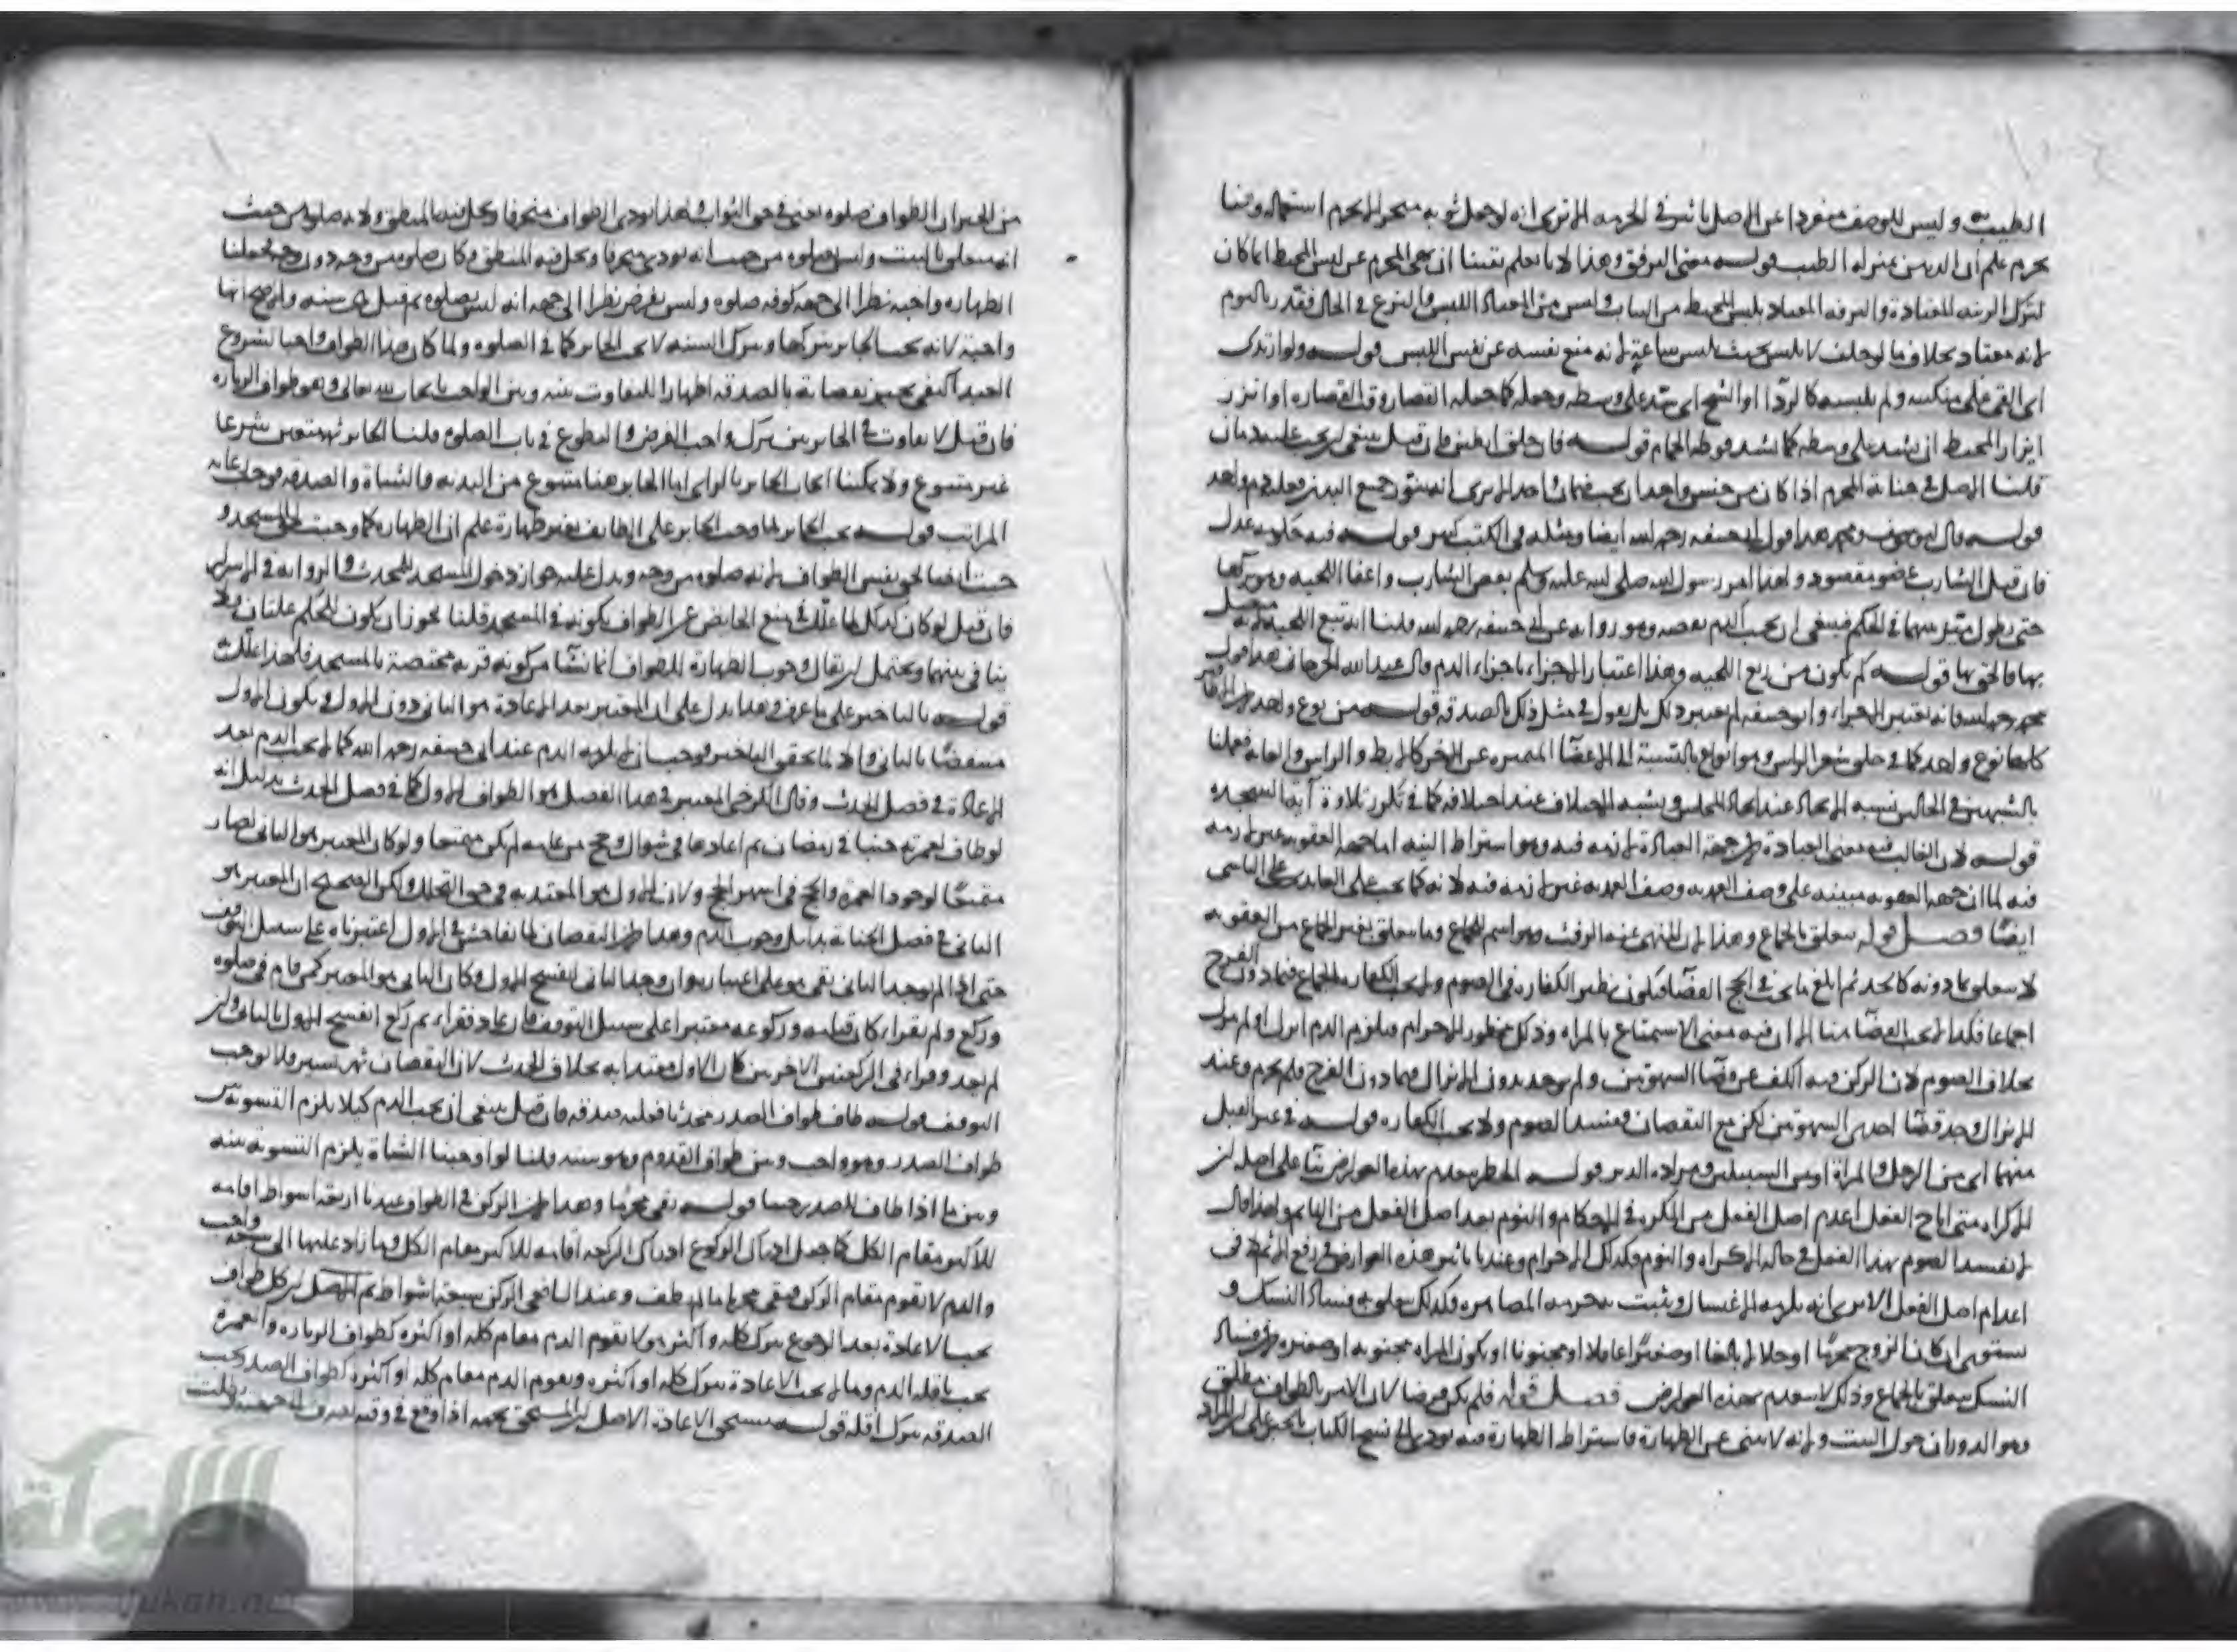 الطيب وليس للوصف منفردا عن الاصل تاثير في الحرمه الا ترى انه لو جعل ثوبه استعماله
يحرم علم ان الدهن بمنزله الطيب قوله معنى الترفق وهذا لانا نعلم يقينا ان نهى المحرم عن لبس المخيط انما كان
لترك الزينه المعتادة والترفه المعتاد بلبس المخيط من الثياب وليس من المعتاد اللبس والنزع في الحال فقدر باليوم
لانه معتاد بخلاف ما لو حلف لا يلبس حيث بلبس ساعة لانه منع نفسه عن نفس اللبس قوله ولو ارتدى
اى القى على منكبيه ولم يلبسه كالردا او اتشح اى شد على وسطه وحمله كما حمله القصار وقت القصاره او اتزر
اتزار المخيط ان يشد على وسطه كما يشد فوطه الحمام قوله فان حلق ابطين فان قيل ينبغى ان يجب عليه دمان
قلنا الاصل في جنايه المحرم اذا كان من جنس واحد ان يجب ضمان واحد الا ترى انه جميع البدن فعليه دم واحد
قوله قال ابو يوسف ومحمد هذا قول ابى حنيفه رحمه الله ايضا ومثله في الكتب كثير قوله فيه حكومه عدل
فان قيل الشارب عضو مقصود ولهذا امر رسول الله صلى الله عليه وسلم بقص الشارب واعفا اللحيه وهو تركها
حتى يطول في الحكم فينبغى ان يجب الدم بقصه وهو روايه عن ابى حنيفه رحمه الله قلنا انه تبع اللحيه لانه متصل
بها فالحق بها قوله كم يكون من ربع اللحيه وهذا اعتبار الاجزاء باجزاء الدم قال عبد الله الجرجانى هذا قول
محمد رحمه الله فانه يعتبر الاجزاء وابو حنيفه لم يعتبر ذلك بل يقول في مثل ذلك بالصدقه قوله من نوع واحد
كلها نوع واحد كما في حلق شعر الراس وهو انواع بالنسبة الى الاعضا المتميزه عن الاخر كالابط والراس والعانه فعملنا
بالشبهين في الحالين لشبه الاتحاد عند اتحاد المجلس وبشبه الاختلاف عند اختلافه كما في تكرر تلاوة آيه السجده
قوله لان الغالب فيه معنى العبادة جهة العبادة لازمه فيه وهو اشتراط النيه اما جهه العقوبه غير لازمه
فيه لما ان جهه العقوبه مبينه على وصف العمديه وصف العمديه غير لازمه فيه لانه كما يجب على العامد يجب على الناسى
ايضا فصل قوله يتعلق بالجماع وهذا لان المنهى عنه الرفث وهو اسم للجماع وما يتعلق بغير الجماع من العقوبه
لا يتعلق بما دونه كالحد ثم ابلغ ما يجب في الحج القضا فيكون نظير الكفاره في الصوم ولا تجب الكفاره بالجماع فيما دون الفرج
اجماعا فكذا لا يجب القضا هنا الا ان فيه معنى الاستمتاع بالمراه وذلك محظور الاحرام فيلزم الدم انزل او لم ينزل
بخلاف الصوم لان الركن فيه الكف عن قضا الشهوتين ولم يوجد بدون الانزال فيما دون الفرج فلم يحرم وعند
الانزال وجد قضا احدى الشهوتين لكن مع النقصان فيفسد الصوم ولا يجب الكفاره قوله في غير القبل
منهما اى من الرجل والمراة او من السبيلين ومراده الدبر قوله الحظر ينعدم بهذه العوارض بنا على اصله ان
الاكراه متى اباح الفعل اعدم اصل الفعل من المكره في الاحكام والنوم يعدم اصل الفعل من النايم ولهذا قال
لا يفسد الصوم بهذا الفعل في حاله الاكراه والنوم فكذلك الاحرام وعندنا تاثير هذه العوارض في رفع الاثم لا في
اعدام اصل الفعل الا ترى انه يلزمه الاغتسال ويثبت به حرمه المصاهره وكذلك يتعلق به فساد النسك و
يستوى ان كان الزوج محرما او حلالا بالغا او صغيرا عاقلا او مجنونا او يكون المراه مجنونه او صغيره لان فساد
النسك يتعلق بالجماع وذلك لا ينعدم بهذه العوارض فصل قوله فلم يكن فرضا لان الامر بالطواف مطلق
وهو الدوران حول البيت وانه لا ينبى عن الطهارة فاشتراط الطهارة فيه يودى الى نسخ الكتاب بالخبر على ان المراد
من الخبر ان الطواف صلوه اعنى في حق الثواب ولهذا يودى الطواف منحرفا ويحل فيه المنطق ولانه صلوه من حيث
انه يتعلق بالبيت وليس بصلوه من حيث انه يودى منحرفا ويحل فيه المنطق وكان صلوه من وجه دون وجه فجعلنا
الطهاره واجبه نظرا الى جهه كونه صلوه وليس بفرض نظرا الى جهه انه ليس بصلوه ثم قيل هى سنه والاصح انها
واجبة لانه يجب الجابر بتركها وبترك السنه لا يجب الجابر كما في الصلوه ولما كان هذا الطواف واجبا لشروع
العبد اكتفى بجبر نقصانه بالصدقه اظهارا للتفاوت بينه وبين الواجب بايجاب الله تعالى وهو طواف الزياره
فان قيل لا تفاوت في الجابر بين ترك واجب الفرض والتطوع في باب الصلوه قلنا الجابر ثمه متعين شرعا
غير متنوع ولا يمكننا ايجاب الجابر بالراى اما الجابر هنا متنوع من البدنه والشاة والصدقه فوجب رعايه
المراتب قوله يجب الجابر لما وجب الجابر على الطايف بغير طهارة علم ان الطهاره كما وجبت لحق المسجد
وجبت ايضا لحق نفس الطواف لانه صلوه من وجه ويدل عليه جواز دخول المسجد للمحدث والروايه في الاسرار
فان قيل لو كان كذلك لما علل في منع الحايض عن الطواف بكونه في المسجد قلنا يجوز ان يكون للحكم علتان ولا
تنافى بينهما ويحتمل ان يقال وجوب الطهارة للطواف انما نشا من كونه قربه مختصة بالمسجد فلهذا علل
قوله بالتاخير على ما عرف وهذا يدل على ان المعتبر بعد الاعادة هو الثانى دون الاول ويكون الاول
منتقضا بالثانى والا لما تحقق التاخير فوجب ان لا يلزمه الدم عند ابى حنيفه رحمه الله كما لا يجب الدم بعد
الاعادة في فصل الحدث وقال الكرخى المعتبر في هذا الفصل هو الطواف الاول كما في فصل الحدث بدليل انه
لو طاف لعمرته جنبا في رمضان ثم اعادها في شوال وحج من عامه لم يكن متمتعا ولو كان المعتبر هو الثانى لصار
متمتعا لوجود العمره والحج في اشهر الحج ولان الاول هو المعتد به في حق التحلل ولكن الصحيح ان المعتبر هو
الثانى في فصل الجنابة بدليل وجوب الدم وهذا لان النقصان لما تفاحش في الاول اعتبرناه على سبيل التوقف
حتى اذا لم يوجد الثانى بقى هو على اعتباره وان وجد الثانى انفسخ الاول وكان الثانى هو المعتبر كمن قام في صلوه
وركع ولم يقراء كان قيامه وركوعه معتبرا على سبيل التوقف فان عاد فقراء ثم ركع انفسخ الاول بالثانى وان
لم يعد وقراء في الركعتين الاخريين كان الاول معتدا به بخلاف الحدث لان النقصان ثمه يسير فلا يوجب
التوقف قوله طاف طواف الصدر محدثا فعليه صدقه فان قيل ينبغى ان يجب الدم كيلا يلزم التسويه بين
طواف الصدر وهو واجب وبين طواف القدوم وهو سنه قلنا لو اوجبنا الشاة يلزم التسويه بينه
وبين ما اذا طاف للصدر جنبا قوله بقى محرما وهذا لان الركن في الطواف عندنا اربعه اشواط اقامه
للاكثر مقام الكل كما جعل ادراك الركوع ادراك الركعه اقامه للاكثر مقام الكل وما زاد عليها الى سبعه واجب
والدم لا يقوم مقام الركن فبقى محرما ما لم يطف وعند الشافعى الركن سبعة اشواط ثم الاصل ان كل طواف
يجب الاعادة بعد الرجوع بترك كله و اكثره لا يقوم الدم مقام كله او اكثره كطواف الزياره والعمره
يجب باقله الدم وما لم يجب الاعادة بترك كله او اكثره ويقوم الدم مقام كله او اكثره كطواف الصدر يجب
الصدقه بترك اقله قوله الاصل ان المستحق بجهه اذا وقع في وقته